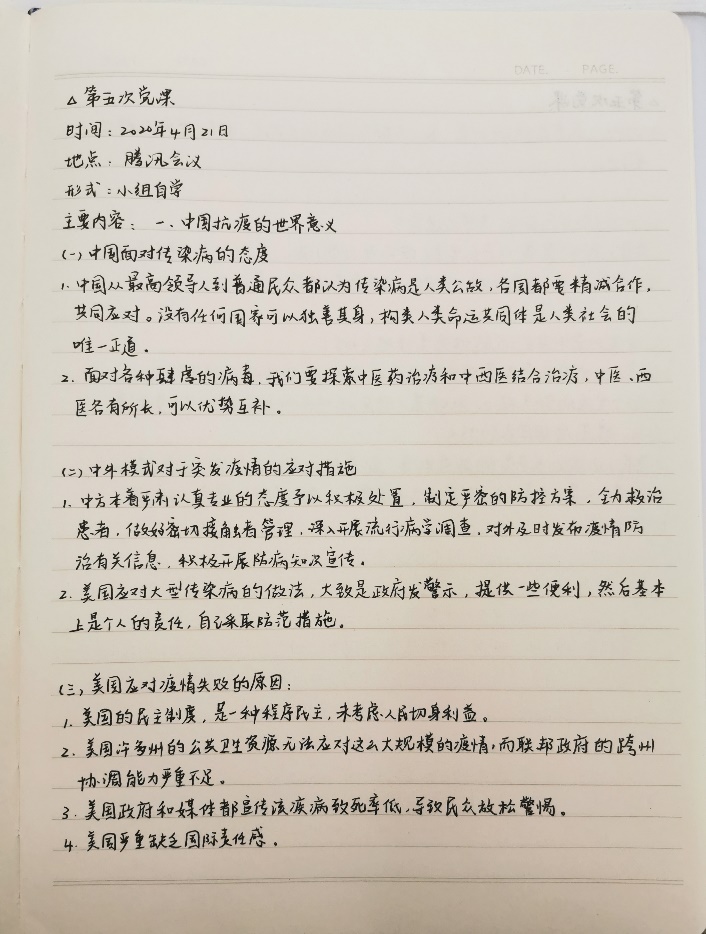 DATE. PAGE.
△ 第五次党课
时间：2020年4月21日
地点：腾讯会议
形式：小组自学
主要内容：一、中国抗疫的世界意义
(一)中国面对传染病的态度
1. 中国从最高领导人到普通民众都认为传染病是人类公敌，各国都要精诚合作，
共同应对。没有任何国家可以独善其身，构类人类命运共同体是人类社会的
唯一正道。
2. 面对各种肆虐的病毒，我们要探索中医药治疗和中西医结合治疗，中医、西
医各有所长，可以优势互补。
(二)中外模式对于突发疫情的应对措施
1. 中方本着严肃认真专业的态度予以积极处置，制定严密的防控方案，全力救治
患者，做好密切接触者管理，深入开展流行病学调查，对外及时发布疫情防
治有关信息，积极开展防病知识宣传。
2. 美国应对大型传染病的做法，大致是政府发警示，提供一些便利，然后基本
上是个人的责任，自己采取防范措施。
(三)美国应对疫情失败的原因：
1. 美国的民主制度，是一种程序民主，未考虑人民切身利益。
2. 美国许多州的公共卫生资源无法应对这么大规模的疫情，而联邦政府的跨州
协调能力严重不足。
3. 美国政府和媒体都宣传该疾病致死率低，导致民众放松警惕。
4. 美国严重缺乏国际责任感。